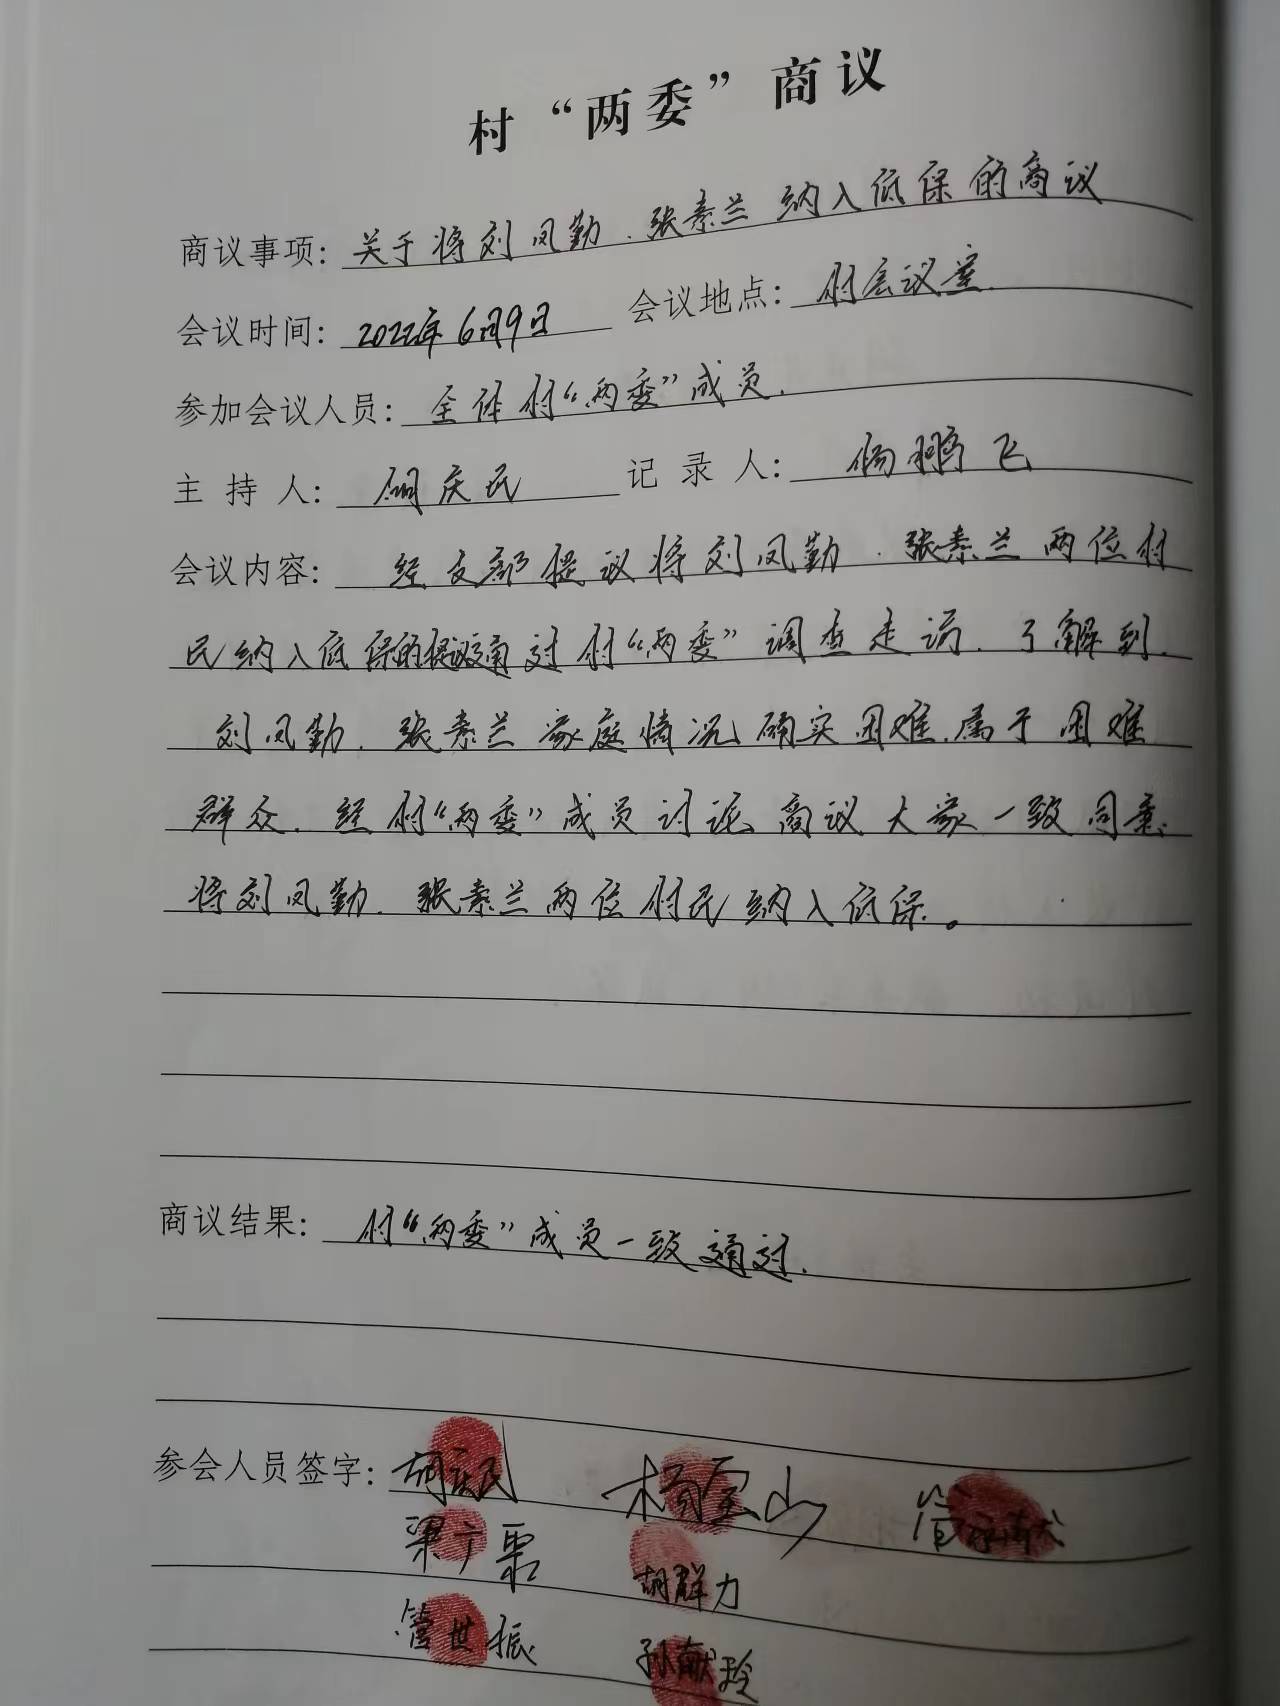 村“两委”商议
商议事项: 关于将刘凤勤、张素兰纳入低保的商议
会议时间: 2022年6月9日 会议地点: 村会议室.
参加会议人员: 全体村“两委”成员.
主持人: 胡庆民 记录人: 杨鹏飞
会议内容: 经支部提议将刘凤勤、张素兰两位村
民纳入低保的提议通过村“两委”调查走访.了解到.
刘凤勤.张素兰家庭情况确实困难.属于困难
群众.经村“两委”成员讨论商议大家一致同意
将刘凤勤.张素兰两位村民纳入低保。
商议结果: 村“两委”成员一致通过.
参会人员签字: 胡庆民 杨宝山
梁广云 胡群力
管世振 孙献玲